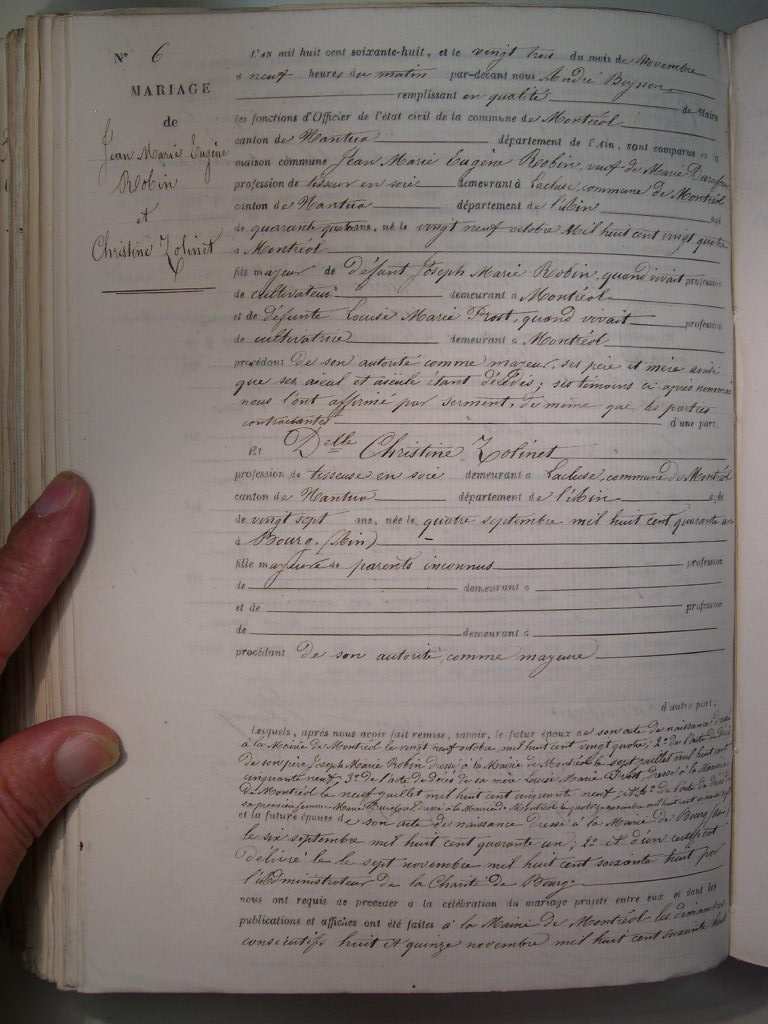 N° 6
MARIAGE
de
Jean Marie Eugène
Robin
et
Christine Zolinet
L'an mil huit cent soixante-huit, et le vingt trois du mois de Novembre
à neuf heures du matin par-devant nous André
remplissant en qualité de Maire
les fonctions d'Officier de l'état civil de la commune de Montréal
canton de Nantua département de l'Ain, sont comparus en la
maison commune Jean Marie Eugène Robin, veuf de Marie
profession de tisseur en soie demeurant à Lacluse, commune de Montréal
canton de Nantua département de l'Ain âgé
de quarante quatre ans, né le vingt neuf octobre mil huit cent vingt quatre
à Montréal
fils majeur de Défunt Joseph Marie Robin, quand vivait profession
de cultivateur demeurant à Montréal
et de Défunte Louise Marie Frost, quand vivait profession
de cultivatrice demeurant à Montréal
procédant de son autorité comme majeur, ses père et mère ainsi
que ses aieul et aieule étant décédés; ses témoins ci après nommés
nous l'ont affirmé par serment, de même que les parties
contractantes d'une part.
Et Delle Christine Zolinet
profession de tisseuse en soie demeurant à Lacluse, commune de Montréal
canton de Nantua département de l'Ain âgée
de vingt sept ans, née le quatre septembre mil huit cent quarante un
à Bourg (Ain)
fille majeure de parents inconnus profession
de demeurant à
et de profession
de demeurant à
procédant de son autorité, comme majeure
d'autre part.
Lesquels, après nous avoir fait remise, savoir, le futur époux de son acte de naissance dressé
à la Mairie de Montréal le vingt neuf octobre mil huit cent vingt quatre; 2° de l'acte de décès
de son père Joseph Marie Robin dressé à la Mairie de Montréal le sept juillet mil huit cent
cinquante neuf; 3° de l'acte de décès de sa mère Louise Marie Frost, dressé à la Mairie
de Montréal le neuf juillet mil huit cent cinquante neuf et 4° de l'acte de décès de
sa première femme Marie dressé à la Mairie de Montréal le novembre mil huit cent
et la future épouse de son acte de naissance dressé à la Mairie de Bourg (Ain)
le six septembre mil huit cent quarante un; 2° et d'un certificat
délivré le sept novembre mil huit cent soixante huit par
l'Administrateur de la Charité de Bourg
nous ont requis de procéder à la célébration du mariage projeté entre eux et dont les
publications et affiches ont été faites à la Mairie de Montréal les dimanches
consécutifs huit et quinze novembre mil huit cent soixante huit